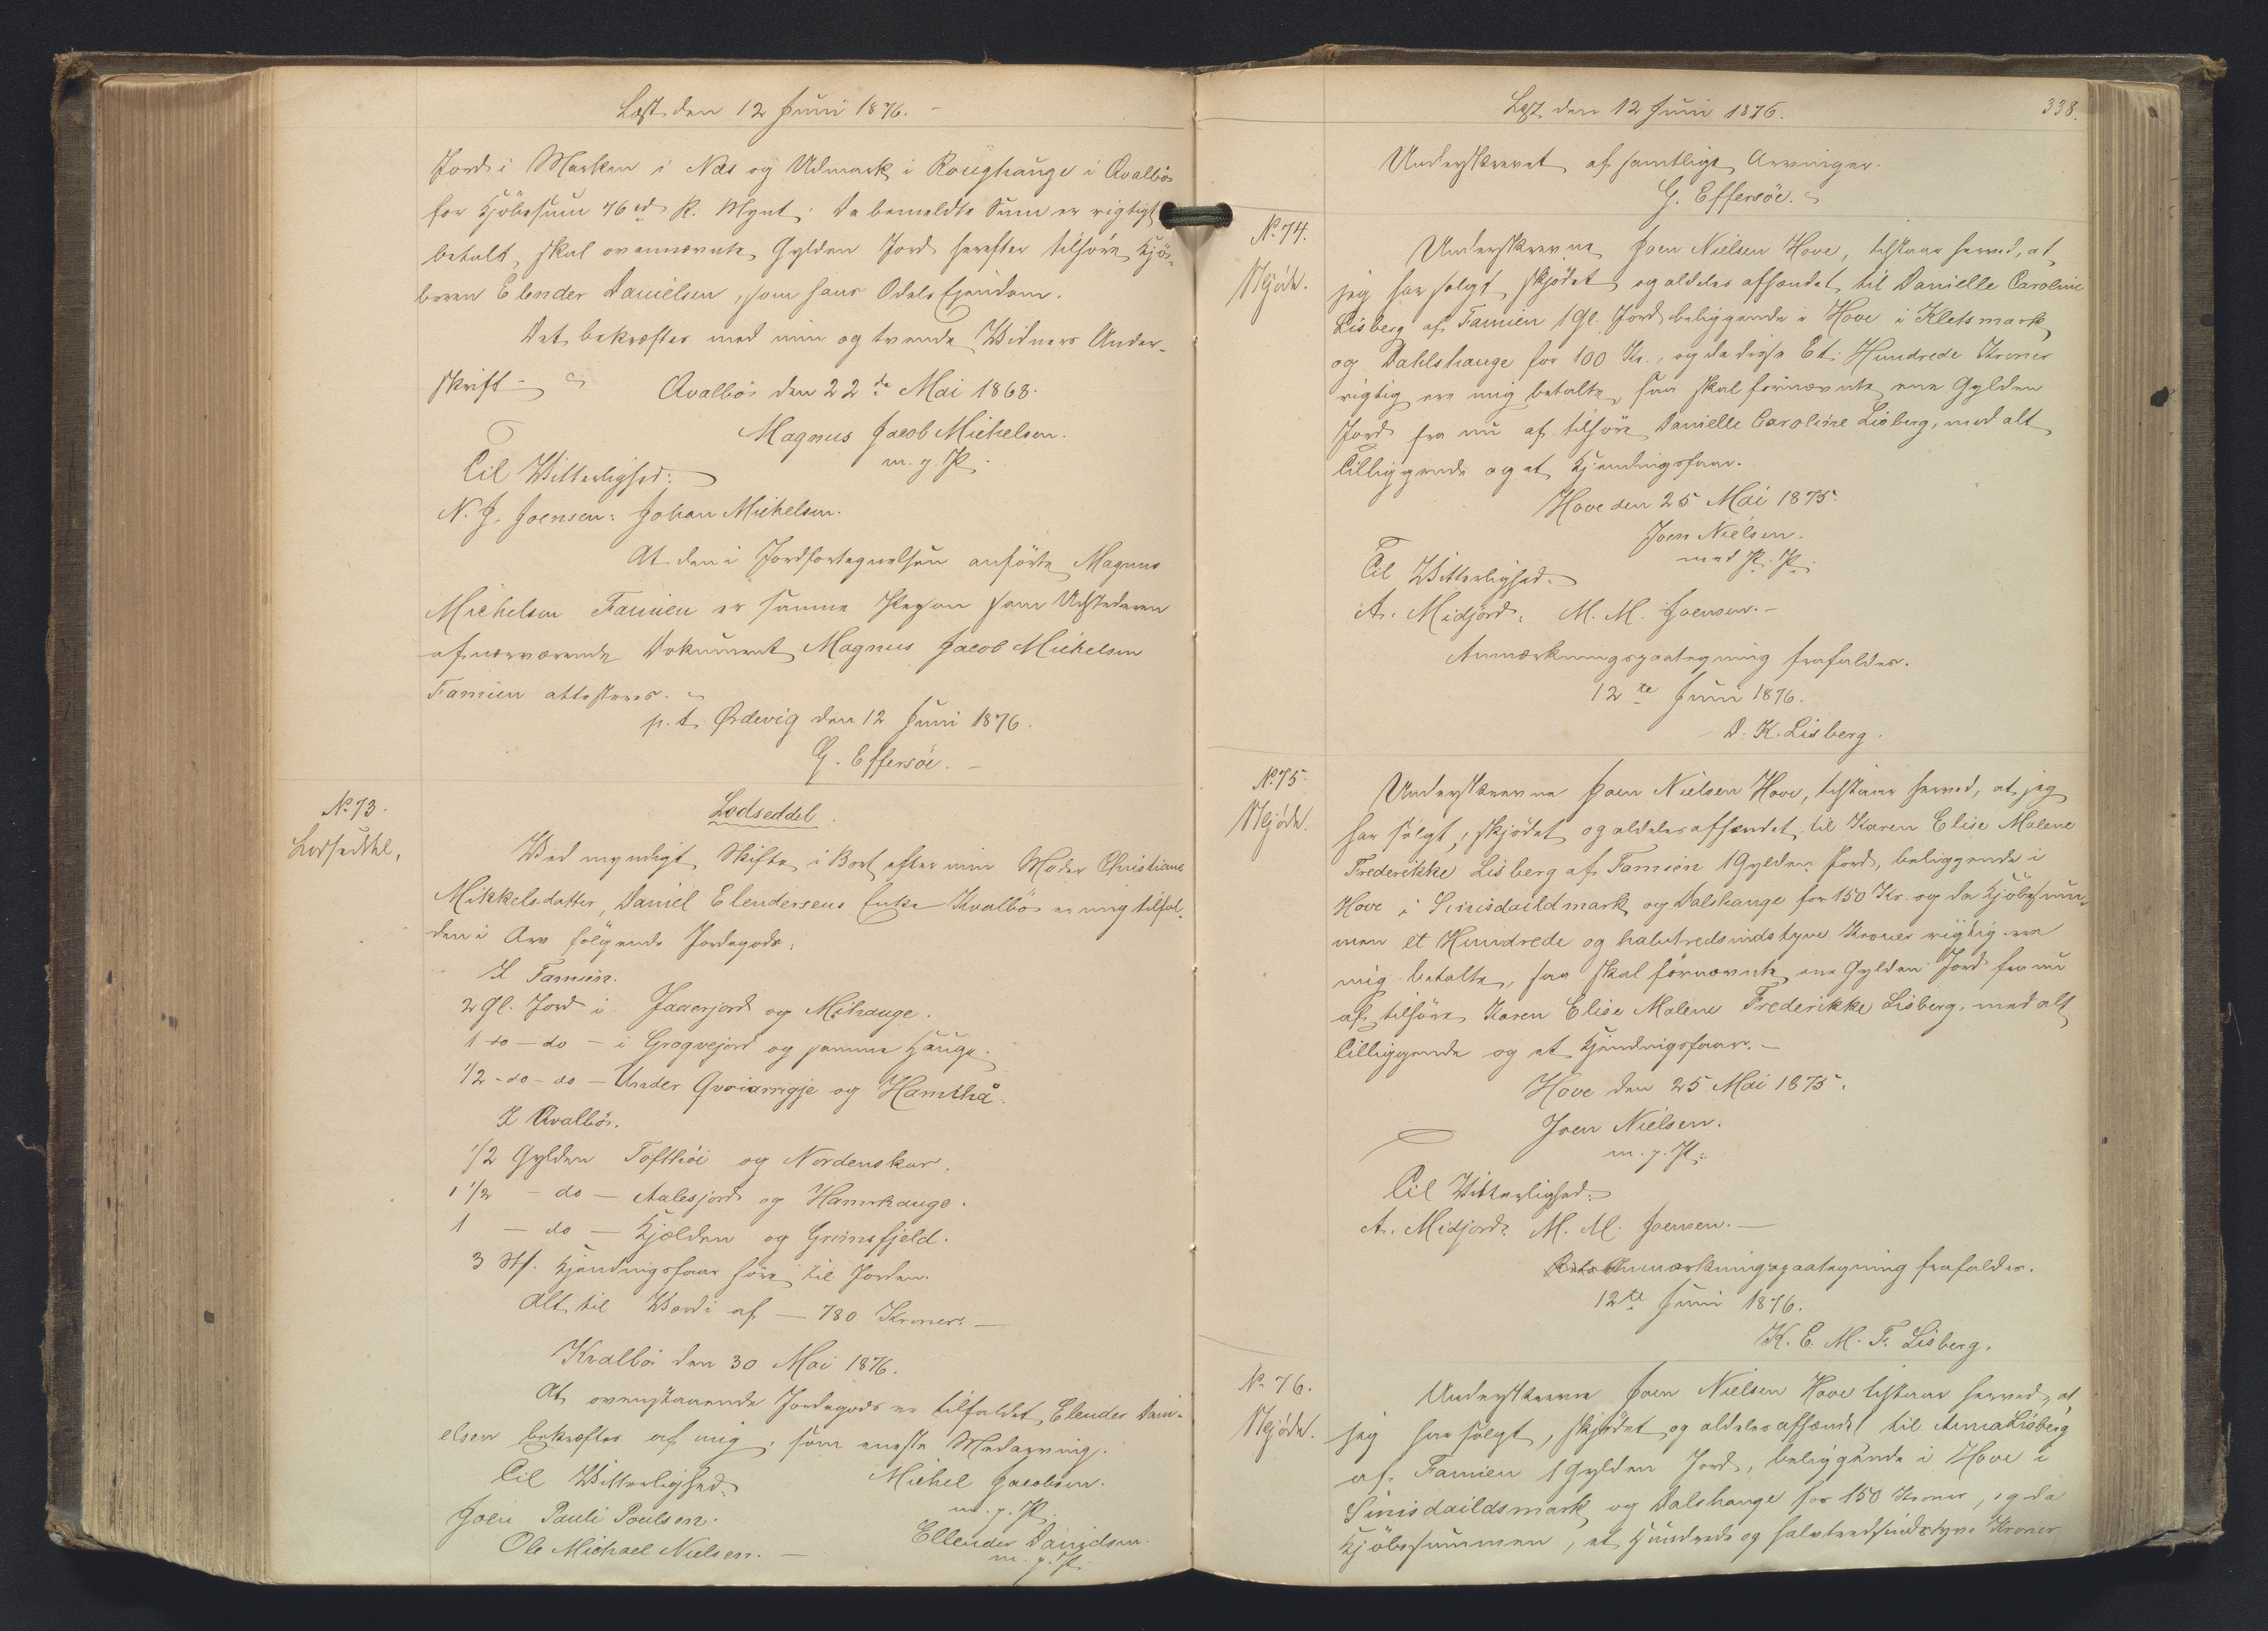 Læst den 12 Juni 1876. –
Jord i Marken i Næs og Udmark i Roughauge i Qvalbø
for Kjöbesum 76 rd R. Mynt. Da bemeldte Sum er rigtigt
betalt, skal ovennævnte Gylden Jord herefter tilhöre Kjö-
beren Elender Danielsen, som hans Odels Ejendom.
Det bekræftes med min og tvende Vidners Under-
skrift –
Qvalbö den 22de Mai 1868.
Magnus Jacob Michelsen.
m. p. P.
Til Vitterlighed:
N. J. Joensen: Johan Michelsen.
At den i Jordfortegnelsen anförte Magnus
Michelsen Famien er samme Person som Udstederen
af nærværende Dokument Magnus Jacob Michelsen
Famien attesteres.
p. t. Ørdevig den 12 Juni 1876.
G. Effersöe. –
No 73.
Lodseddel.
Lodseddel.
Ved mynligt Skifte i Boet efter min Moder Christiane
Mikkelsdatter, Daniel Elendersens Enke Kvalbö er mig tilfal-
den i Arv følgende Jordegods:
I Famien.
2 Gl. Jord i Jaaerjord og Mihauge.
1 do – do – i Grogvejord og samme Hauge.
1/2 – do – do – Under Qvoiarrygje og Hamthå.
I Qvalbö.
1/2 Gylden Toftköi og Nordenskar.
1 1/2 – do – Aalesjord og Hamrhauge.
1 – do – Kjælden og Grimsfjeld.
3 St. Kjendingsfaar höre til Jorden.
Alt til Værdi af – 780 Kroner. –
Kvalbö den 30 Mai 1876.
At ovenstaaende Jordegods er tilfaldet Elender Dani-
elsen bekræftes af mig, som eneste Medarving.
Til Vitterlighed:
Michel Jacobsen.
m. p. P.
Joen Pauli Poulsen.
Ole Michael Nielsen. –
Ellender Danielsen.
m. p. P.
Læst den 12 Juni 1876.
338.
Underskrevet af samtlige Arvinger.
G. Effersöe.
No 74.
Skjöde.
Underskrevne Joen Nielsen Hove, tilstaar herved, at
jeg har solgt, skjödet og aldeles afhændet til Danielle Caroline
Lisberg af Famien 1 Gl. Jord beliggende i Hove i Kletsmark
og Dahlshauge for 100 Kr., og da disse Et Hundrede Kroner
rigtig ere mig betalte, saa skal fornævnte ene Gylden
Jord fra nu af tilhöre Danielle Caroline Lisberg, med alt
Tilliggende og et Kjendingsfaar.
Hove den 25 Mai 1875.
Joen Nielsen.
med P. P.
Til Vitterlighed:
A. Midjord: M. M. Joensen. –
Anmærkningspaategning frafaldes.
12te Juni 1876.
D. K. Lisberg.
No 75.
Skjöde.
Underskrevne Joen Nielsen Hove, tilstaar herved, at jeg
har solgt, skjödet og aldeles afhændet til Karen Elise Malene
Frederikke Lisberg af Famien 1 Gylden Jord, beliggende i
Hove i Sinisdaildmark og Dalshauge for 150 Kr. og da Kjöbesum-
men et Hundrede og halvtredsindstyve Kroner rigtig ere
mig betalte, saa skal fornævnte ene Gylden Jord fra nu
af tilhöre Karen Elise Malene Frederikke Lisberg, med alt
Tilliggende og et Kjendingsfaar. –
Hove den 25 Mai 1875.
Joen Nielsen.
m. p. P.
Til Vitterlighed:
A. Midjord: M. M. Joensen. –
Anmærkningspaategning frafaldes.
12te Juni 1876.
K. E. M. F. Lisberg.
No 76.
Skjöde.
Underskrevne Joen Nielsen Hove tilstaar herved, at
jeg har solgt, skjödet og aldeles afhændet til Anna Lisberg
af Famien 1 Gylden Jord, beliggende i Hove i
Sinisdaildsmark og Dalshauge for 150 Kroner, og da
Kjöbesummen, et Hundrede og halvtredsindstyve Kroner